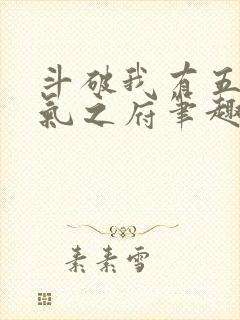 斗破我有五
气之府笔趣
素素雪